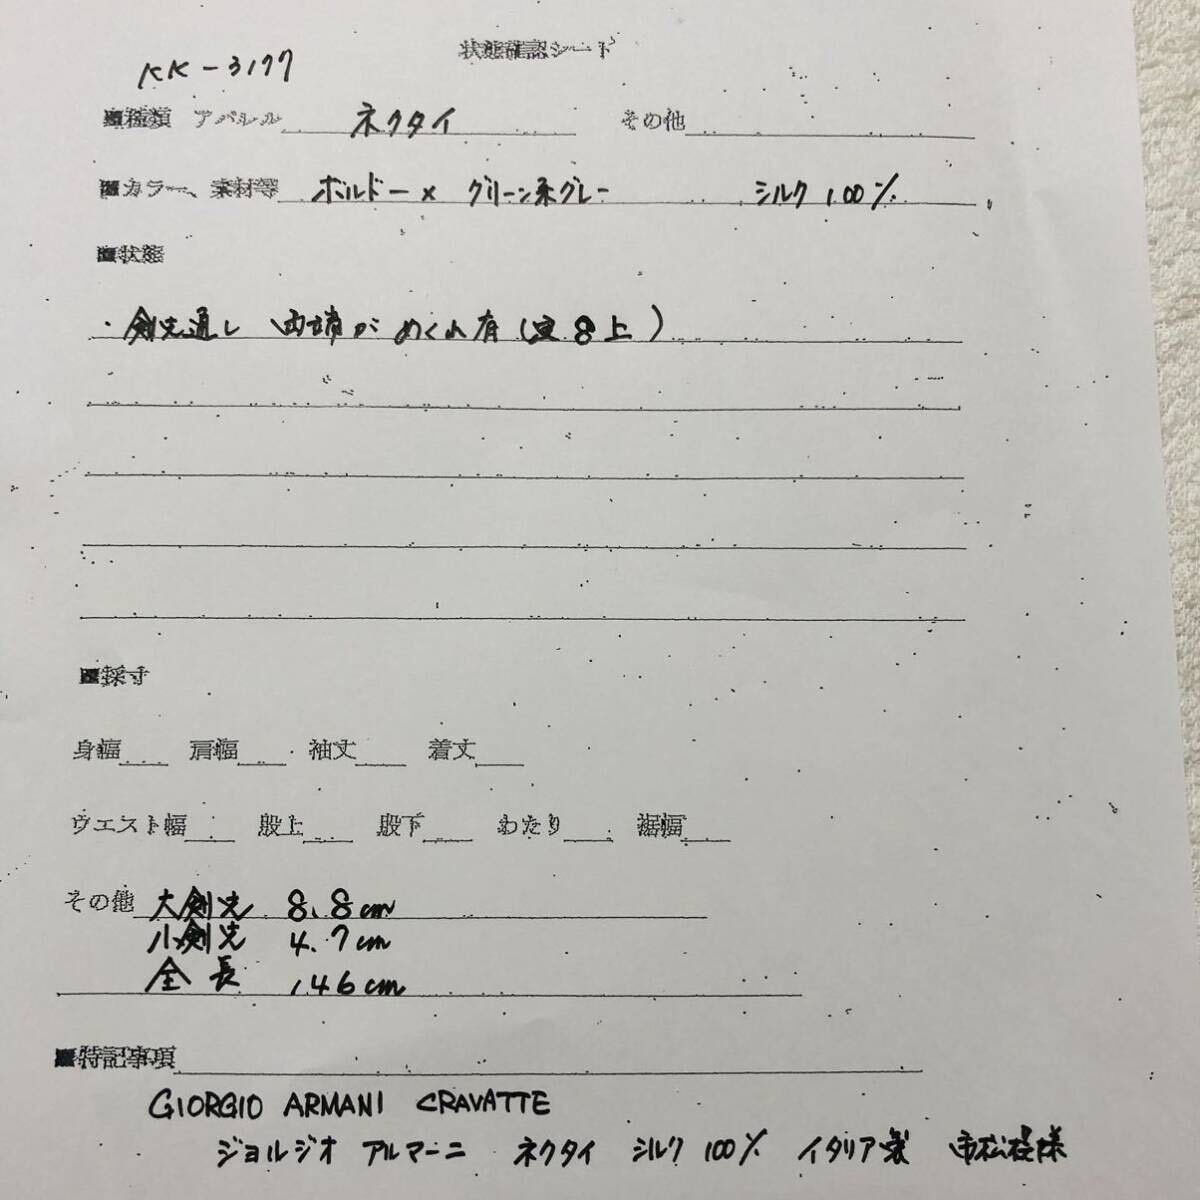 状態確認シート
KK-3177
■種類 アパレル ネクタイ その他
■カラー、素材等 ボルドー× グリーン系グレー シルク 100%
■状態
・剣先通し 両端が めくれ有(写8上)
■採寸
身幅 肩幅 袖丈 着丈
ウエスト幅 股上 股下 わたり 裾幅
その他 大剣先 8.8cm
小剣先 4.7cm
全長 146cm
■特記事項
GIORGIO ARMANI CRAVATTE
ジョルジオ アルマーニ ネクタイ シルク 100% イタリア製 市松模様